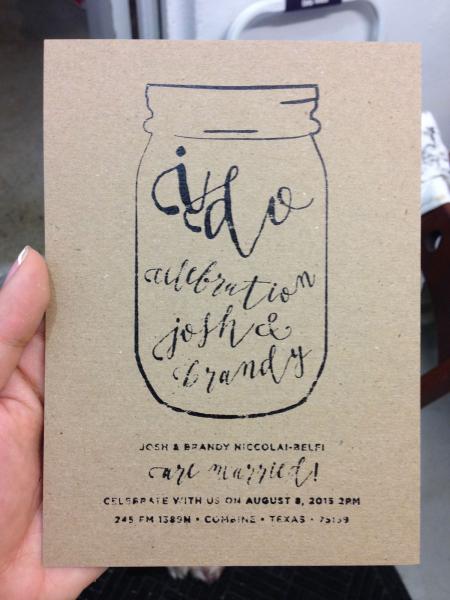 i do
celebration
josh &
brandy
JOSH & BRANDY NICCOLAI-BELFI
are married!
CELEBRATE WITH US ON AUGUST 8, 2015 2PM
245 FM 1389N • COMBINE • TEXAS • 75159